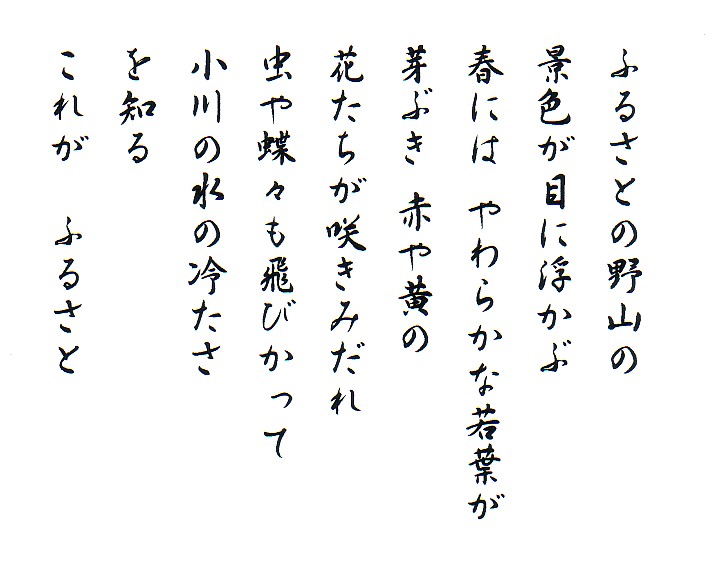 ふるさとの野山の
景色が目に浮かぶ
春には やわらかな若葉が
芽ぶき 赤や黄の
花たちが咲きみだれ
虫や蝶々も飛びかって
小川の水の冷たさ
を知る
これが ふるさと